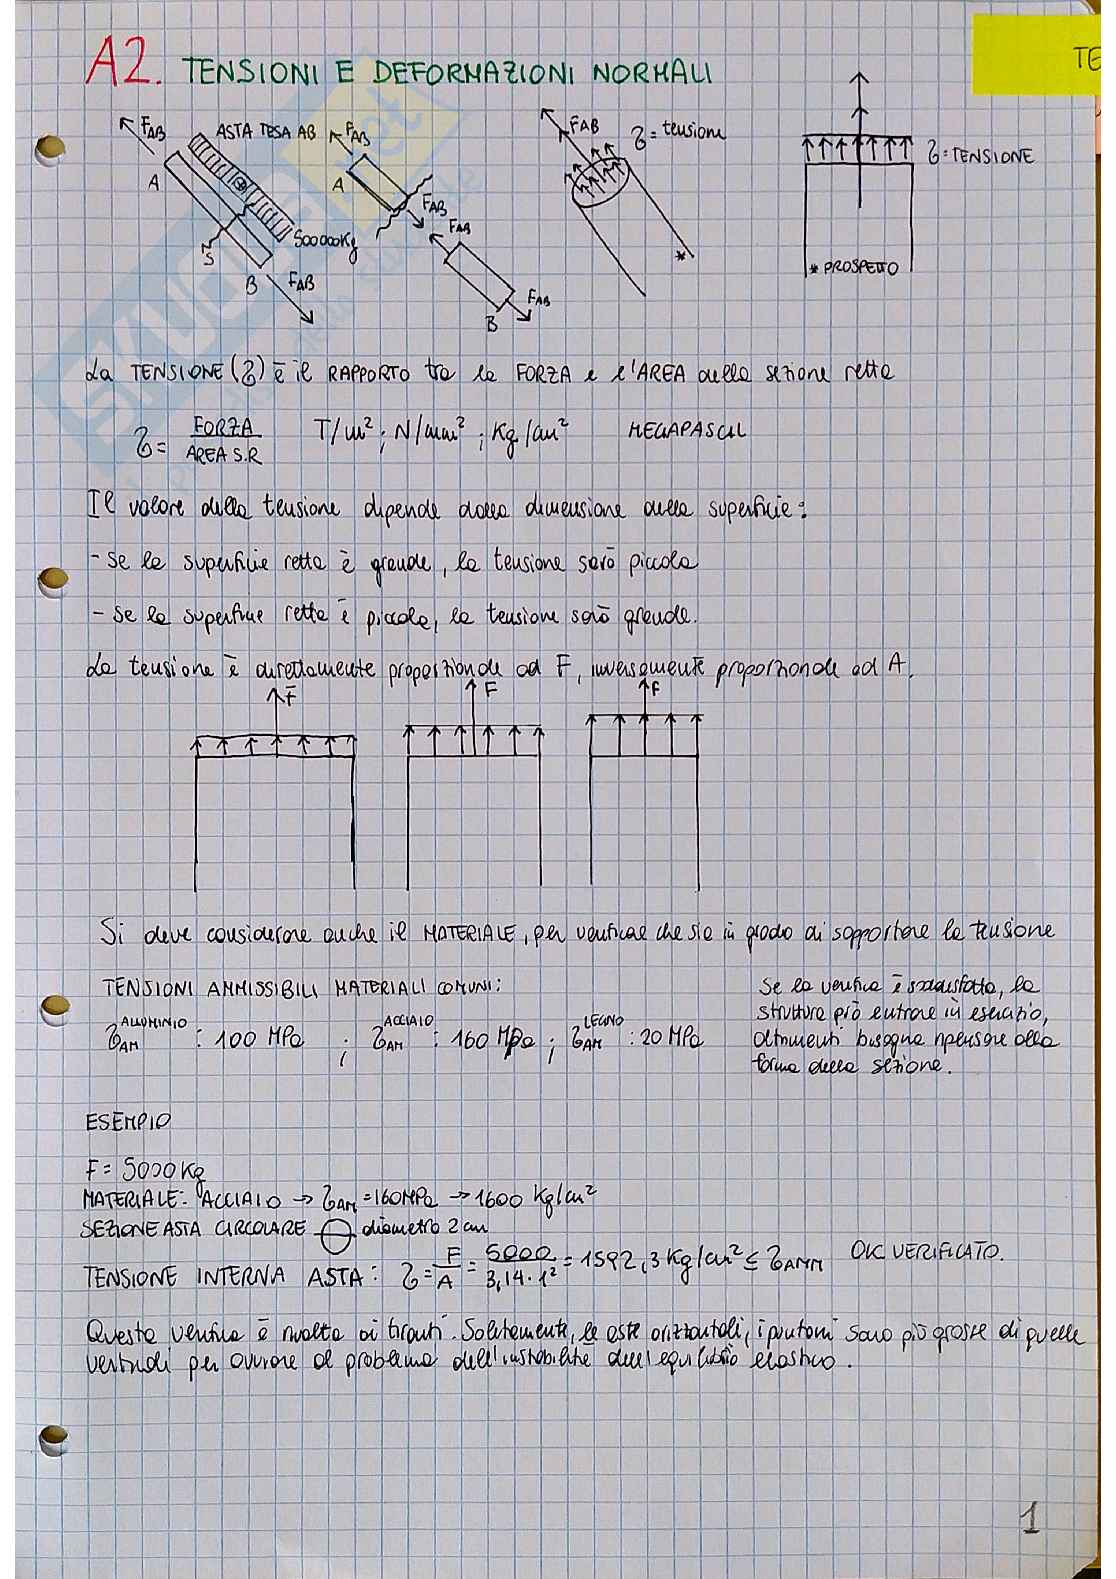 A2. TENSIONI E DEFORMAZIONI NORMALI
TE
FAB
ASTA TESA AB
FAB
FAB
ζ = tensione
A
A
FAB
FAB
ζ = TENSIONE
500000Kg
S
B
FAB
FAB
B
* 
* PROSPETTO
La TENSIONE (ζ) è il RAPPORTO tra la FORZA e l'AREA della sezione retta
ζ = FORZA / AREA S.R T/m² ; N/mm² ; Kg/cm² MEGAPASCAL
Il valore della tensione dipende dalla dimensione della superficie:
- Se la superficie retta è grande, la tensione sarà piccola
- Se la superficie retta è piccola, la tensione sarà grande.
La tensione è direttamente proporzionale ad F, inversamente proporzionale ad A.
F F F
Si deve considerare anche il MATERIALE, per verificare che sia in grado di sopportare la tensione
TENSIONI AMMISSIBILI MATERIALI COMUNI:
ζAM ALLUMINIO : 100 MPa ; ζAM ACCIAIO : 160 MPa ; ζAM LEGNO : 20 MPa
Se la verifica è soddisfatta, la
struttura può entrare in esercizio,
altrimenti bisogna ripensare alla
forma della sezione.
ESEMPIO
F = 5000 Kg
MATERIALE: ACCIAIO → ζAM = 160MPa → 1600 Kg/cm²
SEZIONE ASTA CIRCOLARE diametro 2 cm
TENSIONE INTERNA ASTA: ζ = F/A = 5000 / 3,14 · 1² = 1592,3 Kg/cm² ≤ ζAMM OK VERIFICATO.
Questa verifica è rivolta ai tiranti. Solitamente, le aste orizzontali, i puntoni sono più grosse di quelle
verticali per ovviare al problema dell'instabilità dell'equilibrio elastico.
1